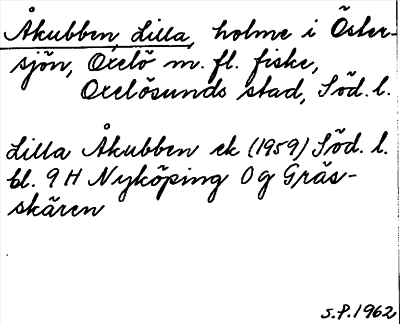 Åkubben, Lilla, holme i Öster-
sjön, Oxelö m. fl. fiske,
Oxelösunds stad, Söd. l.
Lilla Åkubben ek (1959) Söd. l.
bl. 9 H Nyköping 0 g Gräs-
skären
S.P. 1962